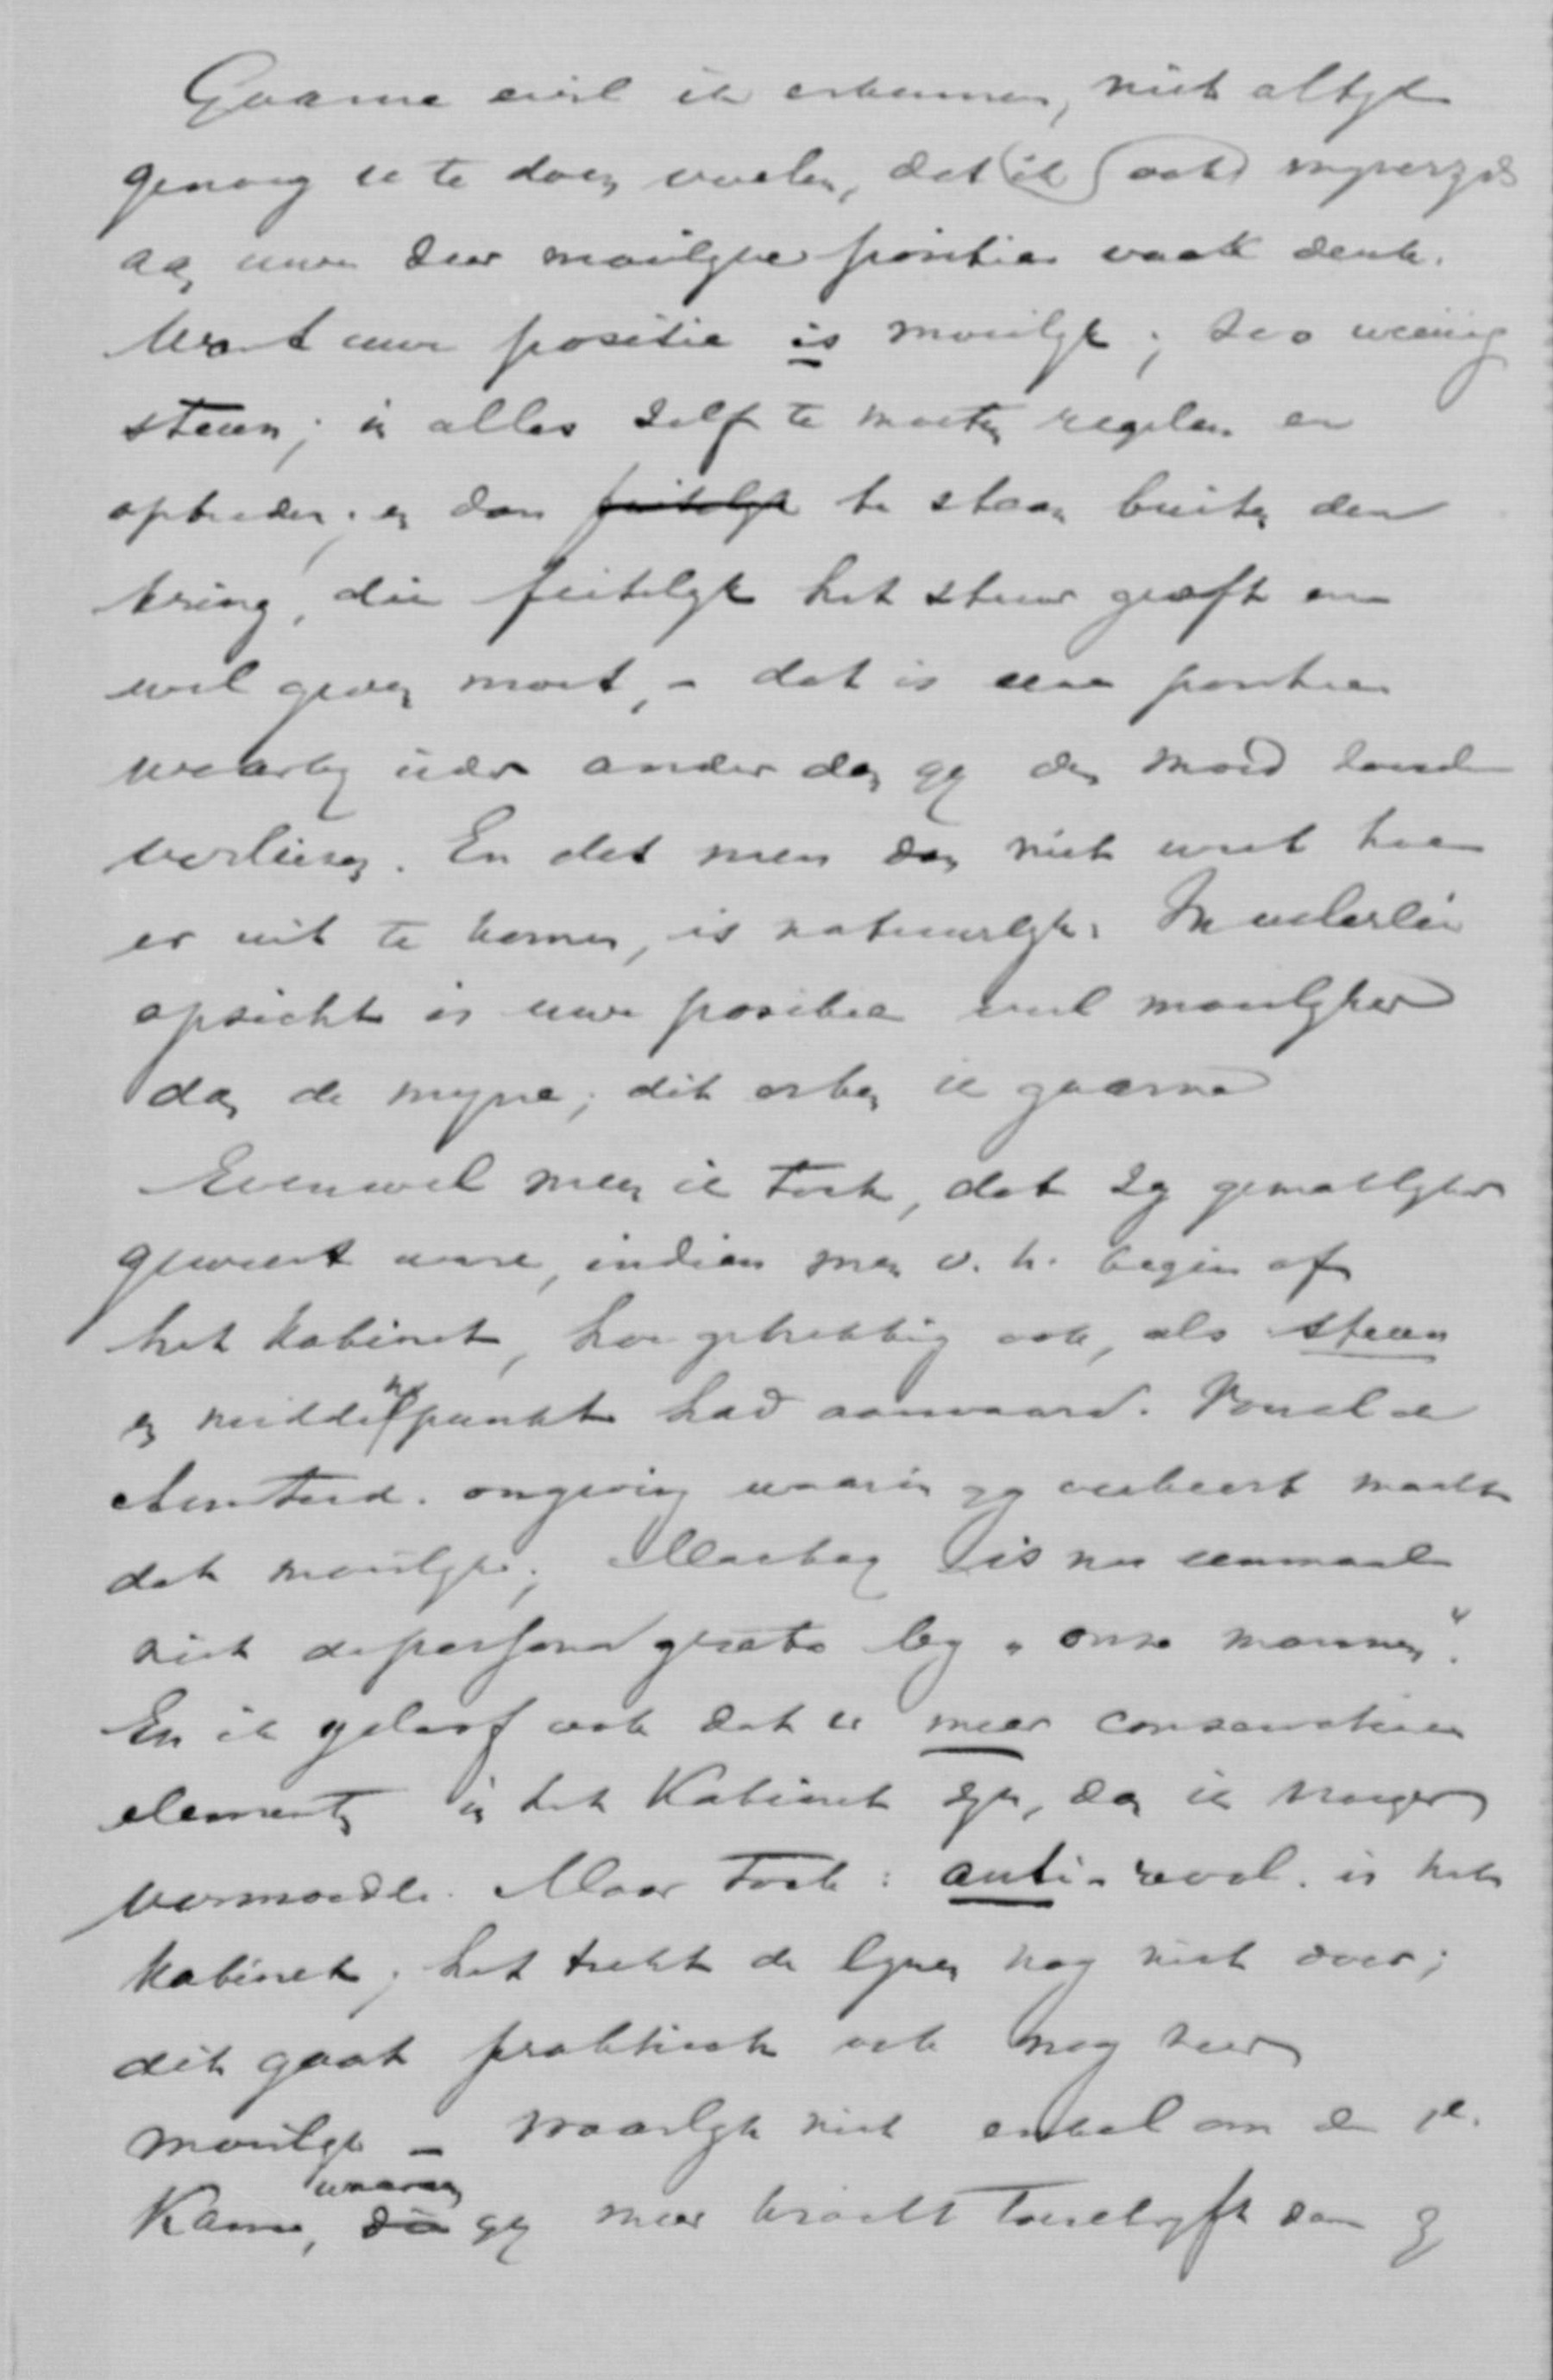 Gaarne wil ik erkennen, niet altyd
genoeg u te doen voelen, dat ik ook mynerzyds
aan uwe zeer moeilyke positie vaak denk.
Want uwe positie is moeilyk; zoo weinig
steun; in alles zelf te moeten regelen en
optreden; en dan feitelyk te staan buiten den
kring, die feitelyk het stuur geeft en
wel geven moet, – dat is eene positie
waarby ieder ander dan gy den moed zoude
verliezen. En dat men dan niet weet hoe
er uit te komen, is natuurlyk. In velerlei
opzicht is uwe positie veel moeilyker
dan de myne; dit erken ik gaarne
Evenwel meen ik toch, dat zy gemakkelyker
geweest ware, indien men v. h. begin af
het Kabinet, hoe gebrekkig ook, als steun
en middenpunkt had aanvaard. Vooral de
Amsterd. omgeving waarin gy verkeert maakt
dat moeilyk; Mackay is nu eenmaal
niet de persona grata by „onze mannen".
En ik geloof ook dat er meer conservatieve
elementen in het Kabinet zyn, dan ik vroeger
vermoedde. Maar toch: anti-revol. is het
Kabinet; het trekt de lynen nog niet door;
dit gaat praktisch ook nog zeer
moeilyk – waarlyk niet enkel om de
Kamer, waaraan die gy meer kracht toeschryft dan zy